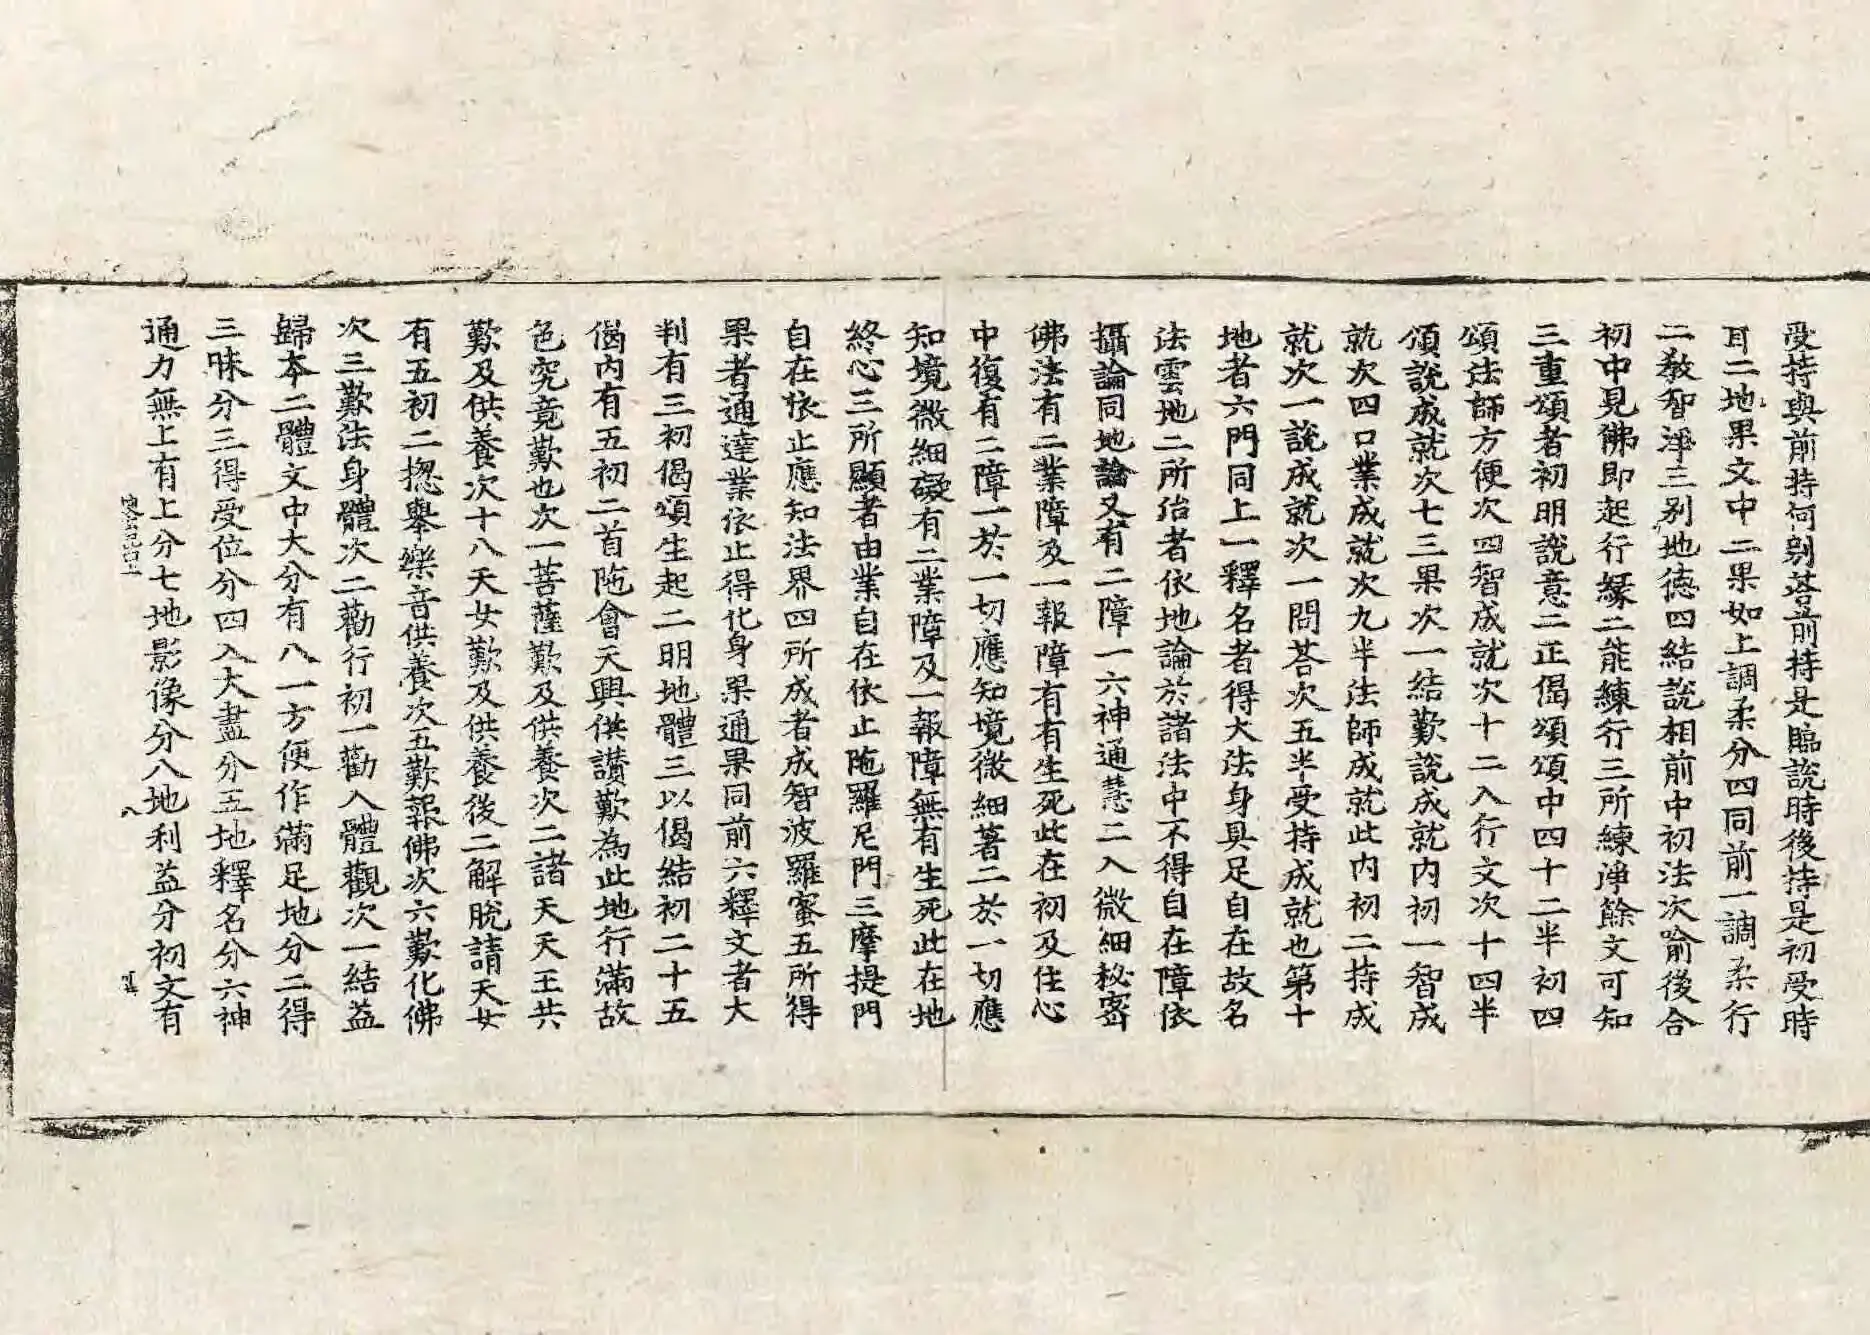 受持與前持何別荅前持是臨說時後持是初受時
耳二地果文中二果如上調柔分四同前一調柔行
二教智淨三別地德四結說相前中初法次喻後合
初中見佛即起行緣二能練行三所練淨餘文可知
三重頌者初明說意二正偈頌頌中四十二半初四
頌法師方便次四智成就次十二入行文次十四半
頌說成就次七三果次一結歎說成就內初一智成
就次四口業成就次九半法師成就此內初二持成
就次一說成就次一問荅次五半受持成就也第十
地者六門同上一釋名者得大法身具足自在故名
法雲地二所治者依地論於諸法中不得自在障依
攝論同地論又有二障一六神通慧二入微細秘密
佛法有二業障及一報障有有生死此在初及住心
中復有二障一於一切應知境微細著二於一切應
知境微細礙有二業障及一報障無有生死此在地
終心三所顯者由業自在依止陁羅尼門三摩提門
自在依止應知法界四所成者成智波羅蜜五所得
果者通達業依止得化身果通果同前六釋文者大
判有三初偈頌生起二明地體三以偈結初二十五
偈內有五初二首陁會天興供讃歎為此地行滿故
色究竟歎也次一菩薩歎及供養次二諸天天王共
歎及供養次十八天女歎及供養後二解脫請天女
有五初二揔舉樂音供養次五歎報佛次六歎化佛
次三歎法身體次二勸行初一勸入體觀次一結益
歸本二體文中大分有八一方便作滿足地分二得
三昧分三得受位分四入大盡分五地釋名分六神
通力無上有上分七地影像分八地利益分初文有
八